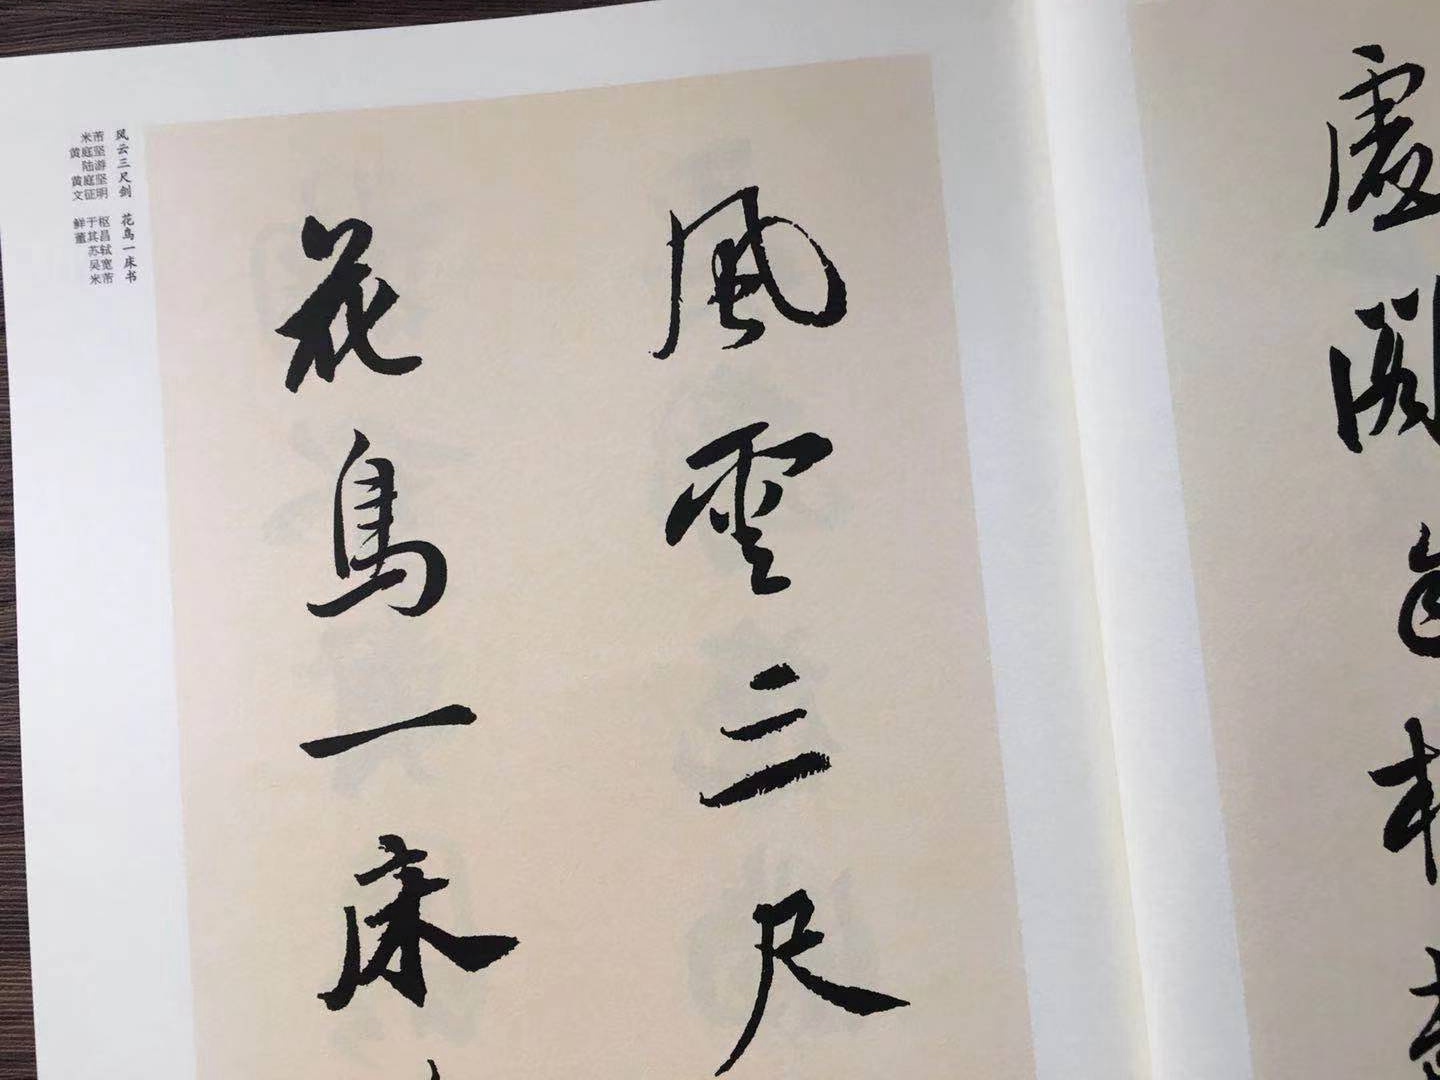 虚
阁
风云三尺剑 花鸟一床书
米芾
黄庭坚
陆游
黄庭坚
文征明
鲜于枢
董其昌
苏轼
吴宽
米芾
風雲三尺
花鳥一床